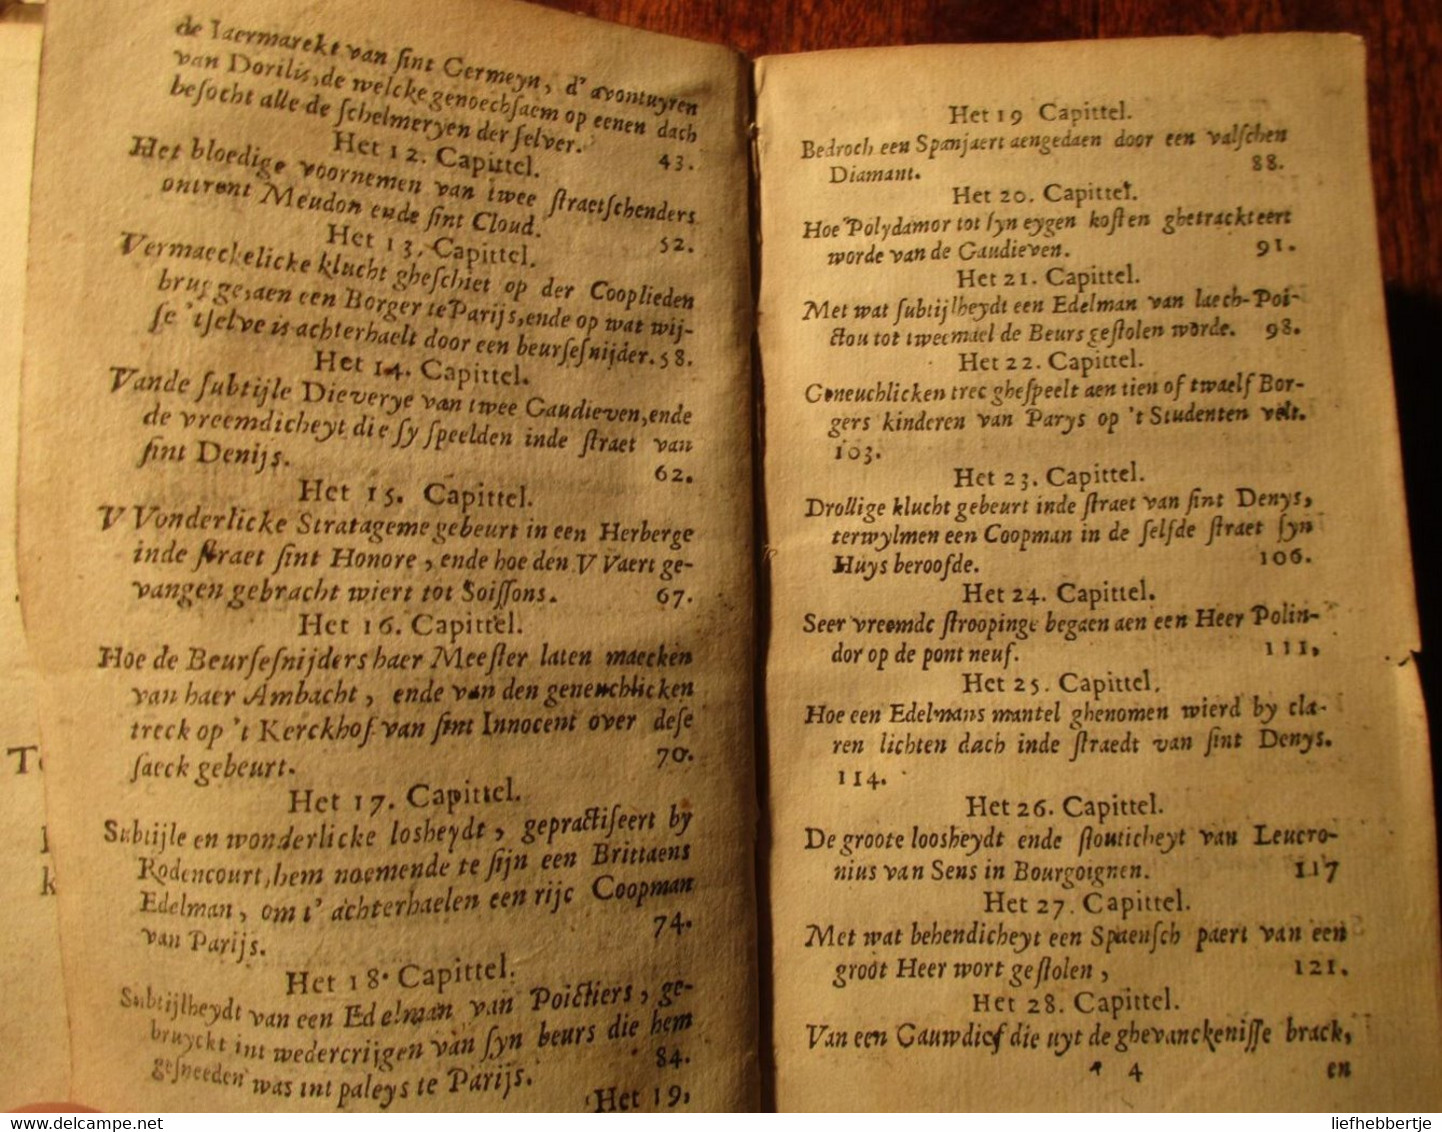 de Iaermarekt van sint Germeyn, d' avontuyren
van Dorilis, de welcke genoechsaem op eenen dach
besocht alle de schelmeryen der selver. 43.
Het 12. Capittel.
Het bloedige voornemen van twee straetschenders
ontrent Meudon ende sint Cloud. 52.
Het 13. Capittel.
Vermaeckelicke klucht gheschiet op der Cooplieden
brugge, aen een Borger te Parijs, ende op wat wij-
se 't selve is achterhaelt door een beursesnijder. 58.
Het 14. Capittel.
Vande subtijle Dieverye van twee Gaudieven, ende
de vreemdicheyt die sy speelden inde straet van
sint Denijs. 62.
Het 15. Capittel.
VVonderlicke Stratageme gebeurt in een Herberge
inde straet sint Honore, ende hoe den VVaert ge-
vangen gebracht wiert tot Soissons. 67.
Het 16. Capittel.
Hoe de Beursesnijders haer Meester laten maecken
van haer Ambacht, ende van den geneuchlicken
treck op 't Kerckhof van sint Innocent over dese
saeck gebeurt. 70.
Het 17. Capittel.
Subtijle en wonderlicke losheydt, gepractiseert by
Rodencourt, hem noemende te sijn een Brittaens
Edelman, om t' achterhaelen een rijc Coopman
van Parijs. 74.
Het 18. Capittel.
Subtijlheydt van een Edelman van Poictiers, ge-
bruyckt int wedercrijgen van syn beurs die hem
gesneeden was int paleys te Parijs. 84.
Het 19,
Het 19 Capittel.
Bedroch een Spanjaert aengedaen door een valschen
Diamant. 88.
Het 20. Capittel.
Hoe Polydamor tot syn eygen kosten ghetrackteert
worde van de Gaudieven. 91.
Het 21. Capittel.
Met wat subtijlheydt een Edelman van laech-Poi-
ctou tot tweemael de Beurs gestolen worde. 98.
Het 22. Capittel.
Geneuchlicken trec ghespeelt aen tien of twaelf Bor-
gers kinderen van Parys op 't Studenten velt.
103.
Het 23. Capittel.
Drollige klucht gebeurt inde straet van sint Denys,
terwylmen een Coopman in de selfde straet syn
Huys beroofde. 106.
Het 24. Capittel.
Seer vreemde stroopinge begaen aen een Heer Polin-
dor op de pont neuf. 111,
Het 25. Capittel.
Hoe een Edelmans mantel ghenomen wierd by cla-
ren lichten dach inde straedt van sint Denys.
114.
Het 26. Capittel.
De groote loosheydt ende stouticheyt van Leucro-
nius van Sens in Bourgoignen. 117
Het 27. Capittel.
Met wat behendicheyt een Spaensch paert van een
groot Heer wort gestolen, 121.
Het 28. Capittel.
Van een Gauwdief die uyt de ghevanckenisse brack,
* 4 en
delcampe.net
liefhebbertje